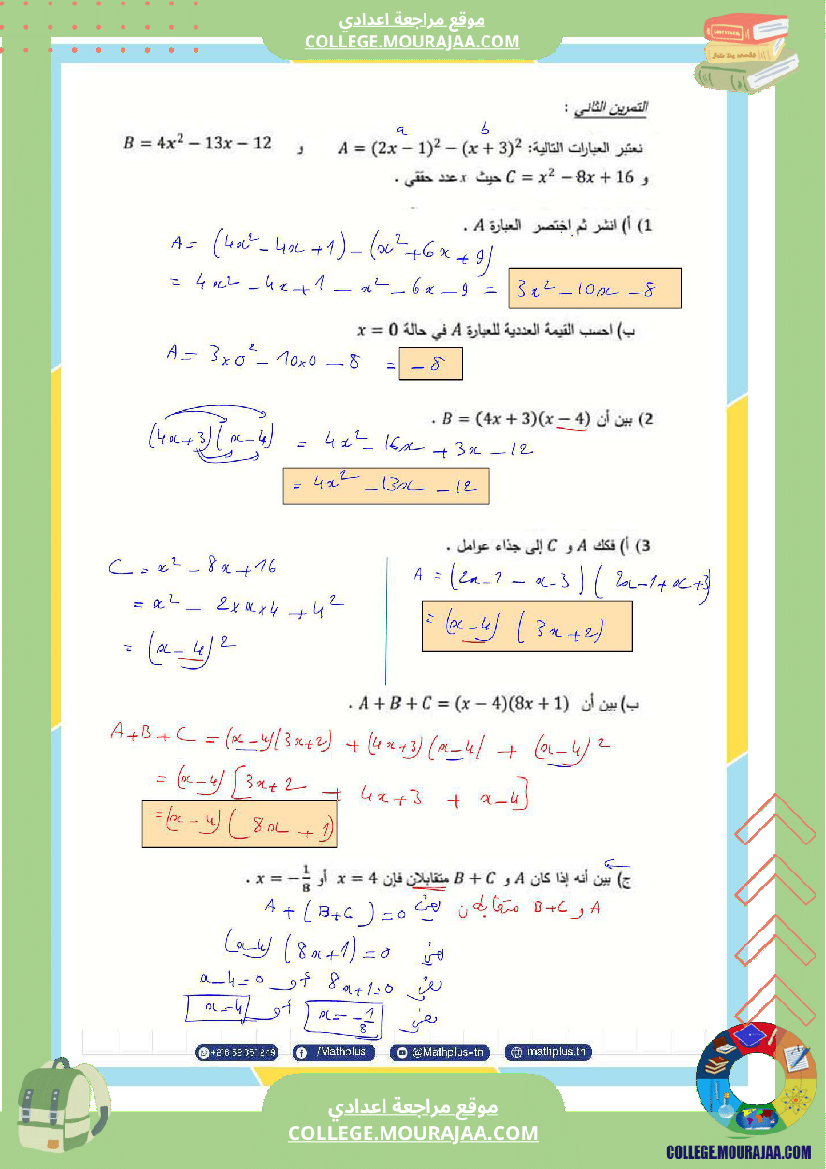 موقع مراجعة اعدادي
COLLEGE.MOURAJAA.COM
التمرين الثاني :
a b
نعتبر العبارات التالية: A = (2x − 1)² − (x + 3)² و B = 4x² − 13x − 12
و C = x² − 8x + 16 حيث x عدد حقيقي .
1) أ) انشر ثم إختصر العبارة A .
A = (4x² − 4x + 1) − (x² + 6x + 9)
= 4x² − 4x + 1 − x² − 6x − 9 = 3x² − 10x − 8
ب) احسب القيمة العددية للعبارة A في حالة x = 0
A = 3×0² − 10×0 − 8 = − 8
2) بين أن B = (4x + 3)(x − 4) .
(4x+3)(x−4) = 4x² − 16x + 3x − 12
= 4x² − 13x − 12
3) أ) فكك A و C إلى جذاء عوامل .
A = (2x−1 − x−3)(2x−1+x+3)
= (x−4)(3x+2)
C = x² − 8x + 16
= x² − 2×x×4 + 4²
= (x−4)²
ب) بين أن A + B + C = (x − 4)(8x + 1) .
A+B+C = (x−4)(3x+2) + (4x+3)(x−4) + (x−4)²
= (x−4)[3x+2 + 4x+3 + x−4]
= (x−4)(8x + 1)
ج) بين أنه إذا كان A و B + C متقابلان فإن x = 4 أو x = −1/8 .
A و B+C متقابلان يعني A + (B+C) = 0
يعني (x−4)(8x+1) = 0
يعني 8x+1=0 أو x−4=0
يعني x = −1/8 أو x=4
/Mathplus
@Mathplus-tn
mathplus.tn
موقع مراجعة اعدادي
COLLEGE.MOURAJAA.COM
COLLEGE.MOURAJAA.COM